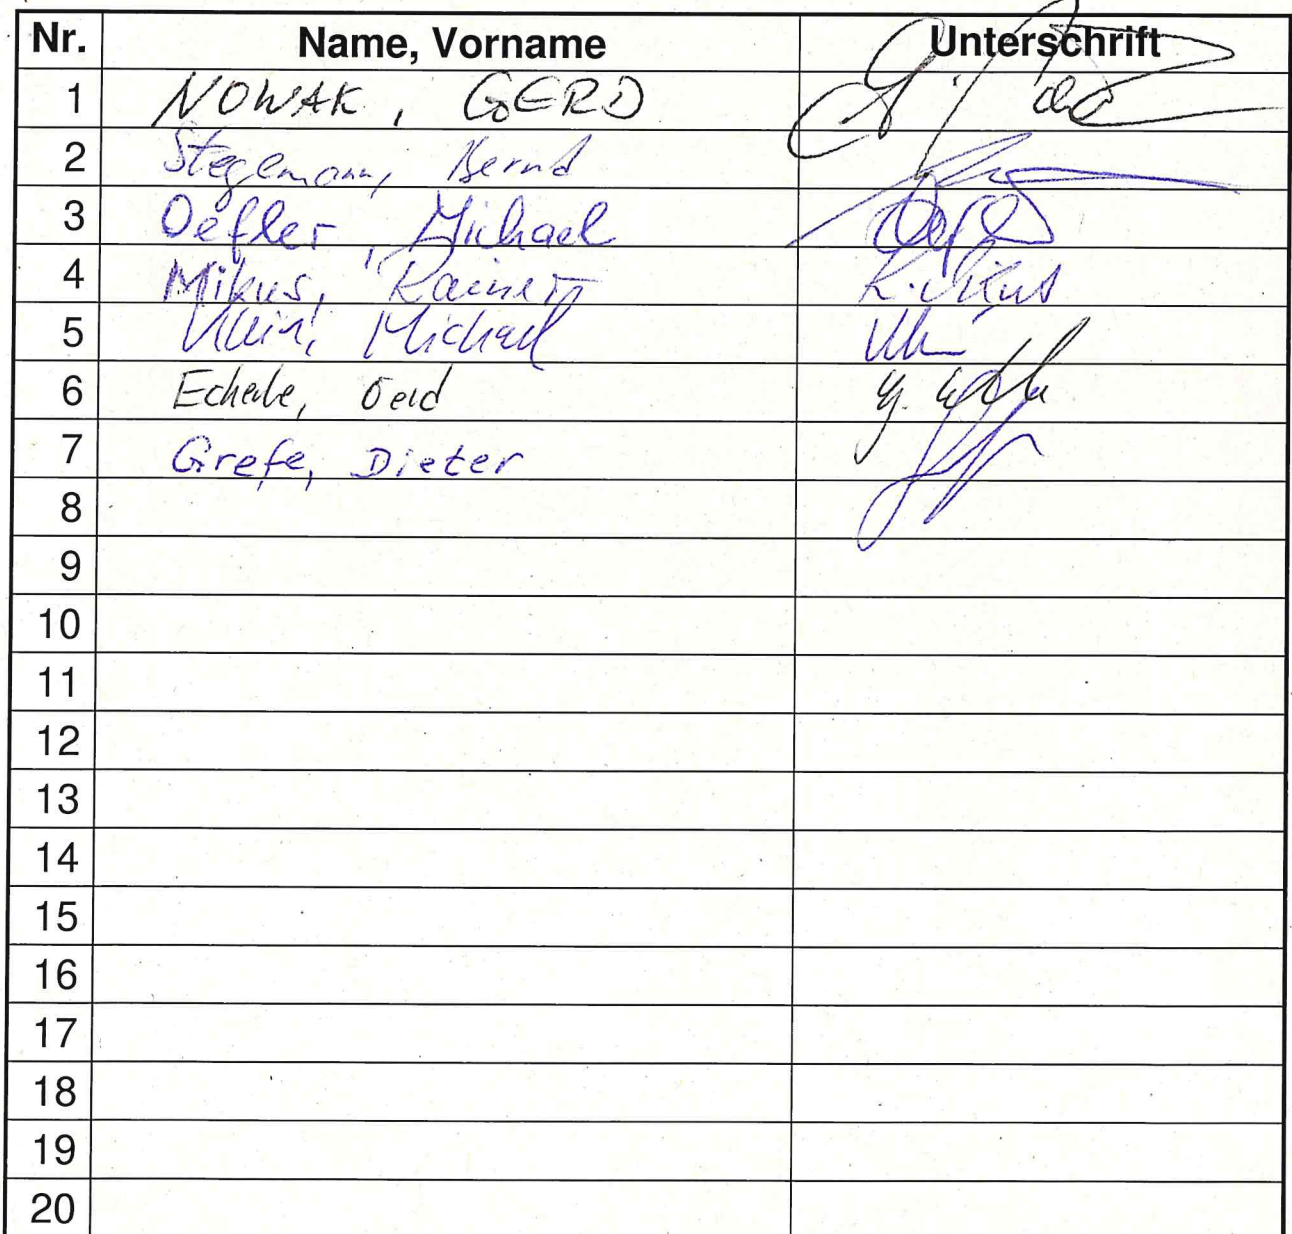 Nr. Name, Vorname Unterschrift
1 NOWAK, GERD
2 Stegemann, Bernd
3 Oefler, Michael
4 Mikus, Rainer R. Mikus
5 Klein, Michael
6
7 Grefe, Dieter
8
9
10
11
12
13
14
15
16
17
18
19
20